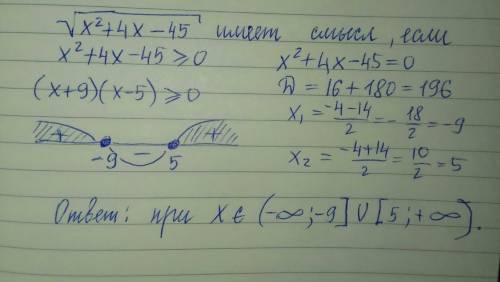 √x²+4x−45 имеет смысл, если
x²+4x−45⩾0
(x+9)(x−5)⩾0
+ − +
−9 5
x²+4x−45=0
D=16+180=196
x₁=(−4−14)/2=−18/2=−9
x₂=(−4+14)/2=10/2=5
Ответ: при x∈(−∞;−9]∪[5;+∞).